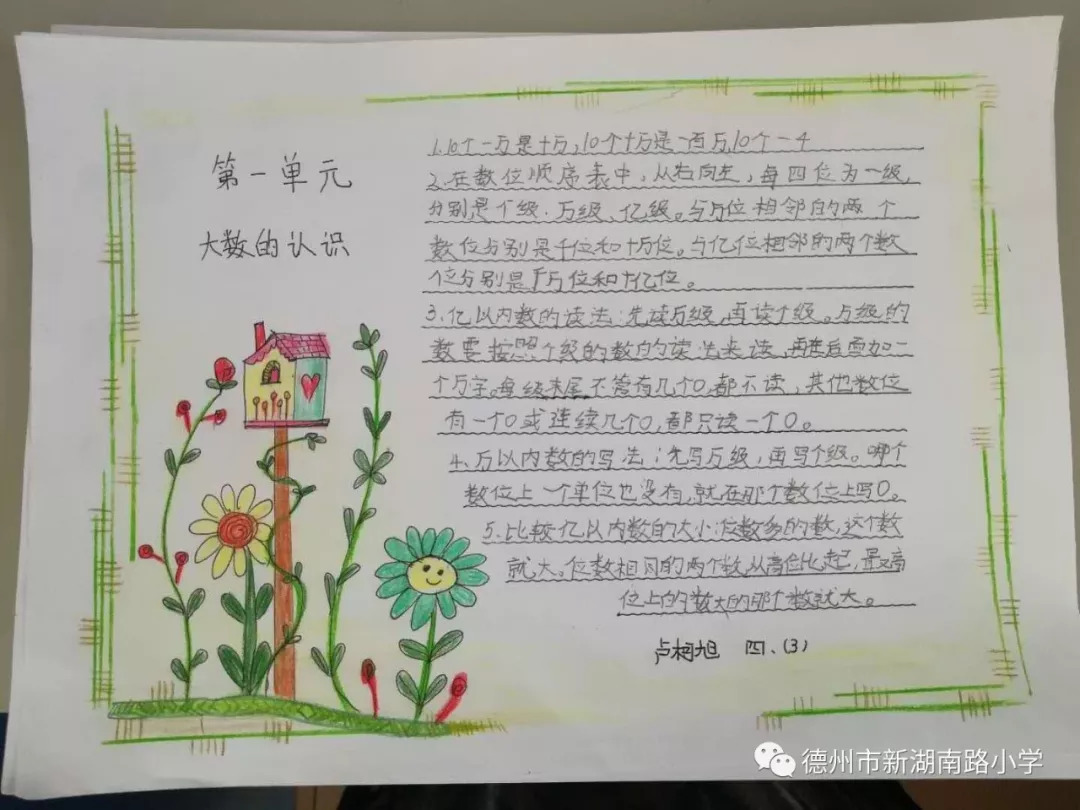 第一单元
大数的认识
1.10个一万是十万,10个十万是一百万,10个一千
2.在数位顺序表中,从右向左,每四位为一级,
分别是个级.万级、亿级。与万位相邻的两个
数位分别是千位和十万位。与亿位相邻的两个数
位分别是千万位和十亿位。
3.亿以内数的读法:先读万级,再读个级。万级的
数要按照个级的数的读法来读,再在后面加一
个万字。每级末尾不管有几个0,都不读,其他数位
有一个0或连续几个0,都只读一个0。
4.万以内数的写法:先写万级,再写个级。哪个
数位上一个单位也没有,就在那个数位上写0。
5.比较亿以内数的大小:位数多的数,这个数
就大。位数相同的两个数,从高位比起,最高
位上的数大的那个数就大。
卢柯旭 四、(3)
德州市新湖南路小学